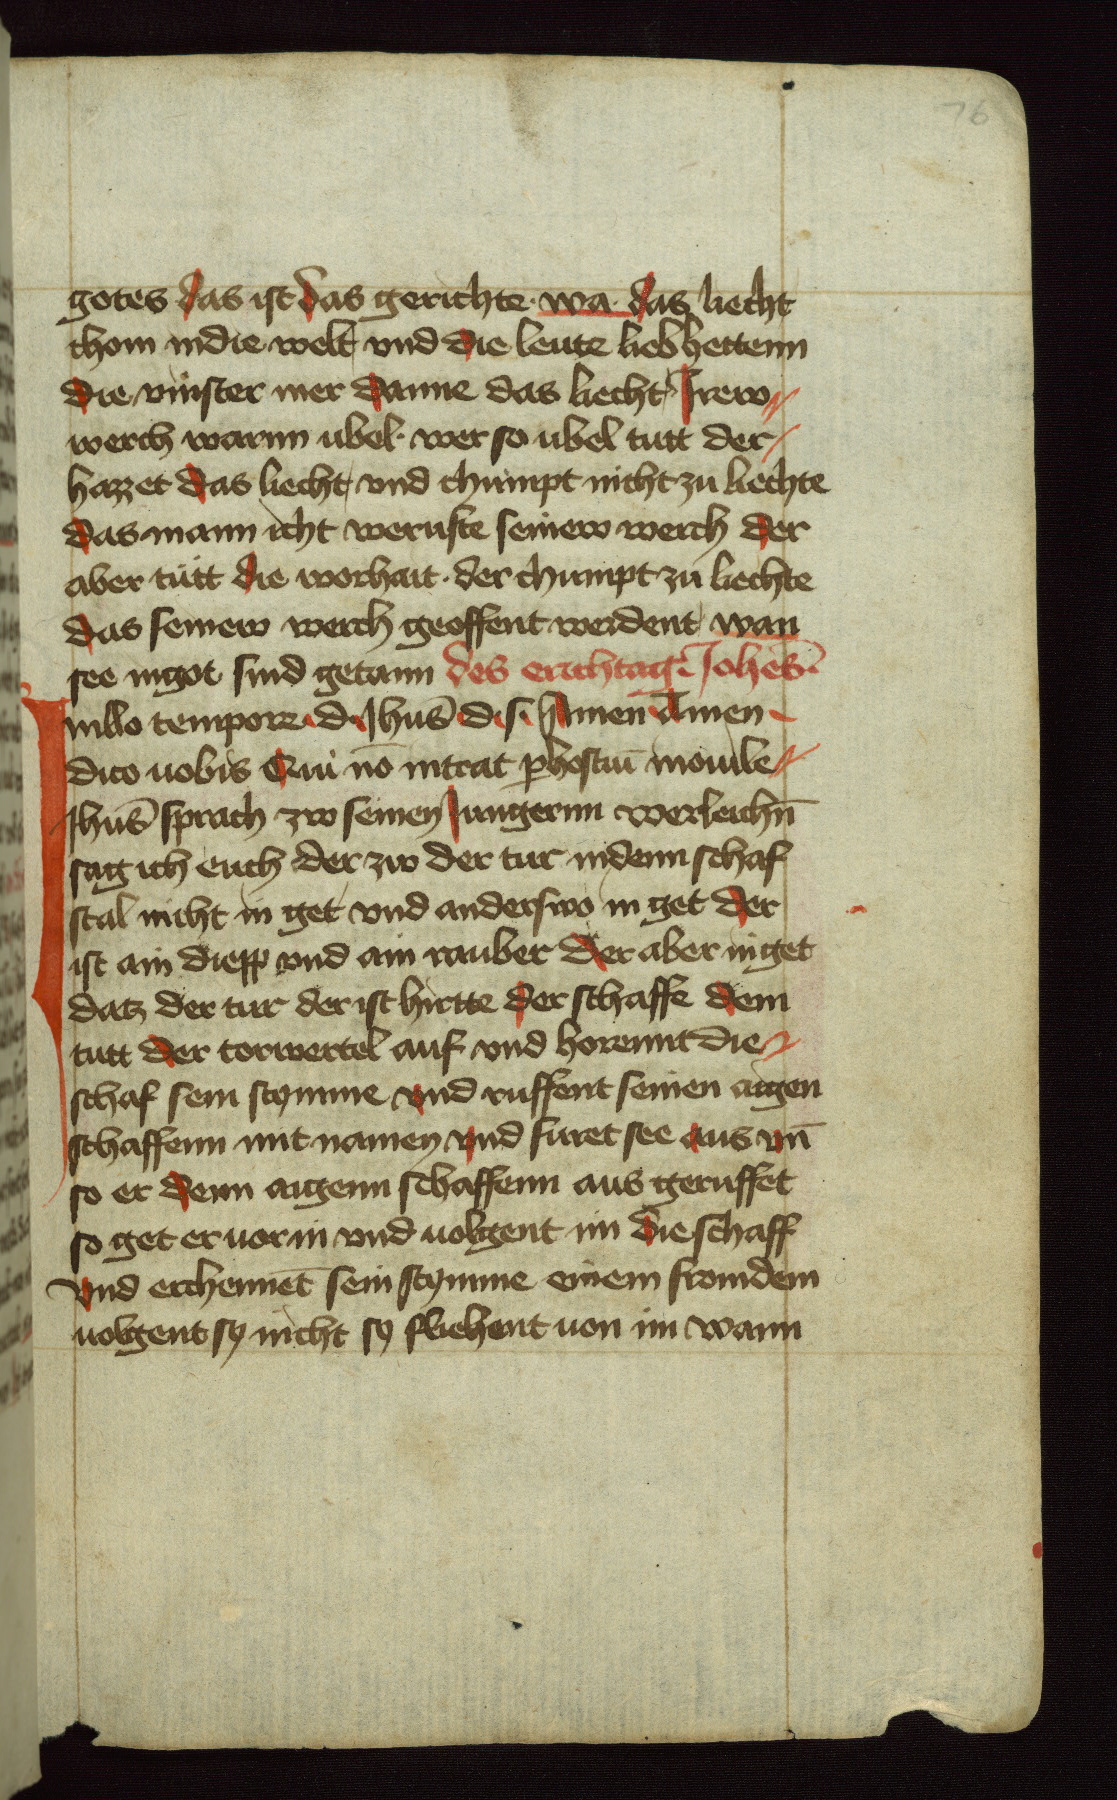 76
gotes das ist das gerichte · wa · das liecht
chom in die welt vnd die leute lieb hettenn
die vinster mer danne das liecht Irew
werch warnn ubel · wer so ubel tutt der
hazzet das liecht vnd chumpt nicht zu liechte
das mann icht weruste seinew werch der
aber tutt die worhait · der chumpt zu liechte
das seinew werch geoffent werdent wan
see in got sind getann des erichtags Johes
In illo tempore · d · Jhus̄ d · s · Amen Amen
dico uobis Qui nō intrat p hostiū in ouile
Jhus̄ sprach zw seinen Jungernn werleichn̄
sag ich euch der zw der tur in denn schaf
stal nicht in get vnd anderswo in get der
ist ain diepp vnd ain rauber Der aber in get
datz der tur der ist hirtte der schaffe dem
tutt der torwertel auf vnd horennt die
schaf sein stymme vnd ruffent seinen aigen
schaffenn mit namen vnd furet see aus vn̄
so er denn aigenn schaffenn aus geruffet
so get er uor in vnd uolgent im die schaff
vnd erchennēt sein stymme einem fromdem
uolgent sy nicht sy fliehent uon im wann